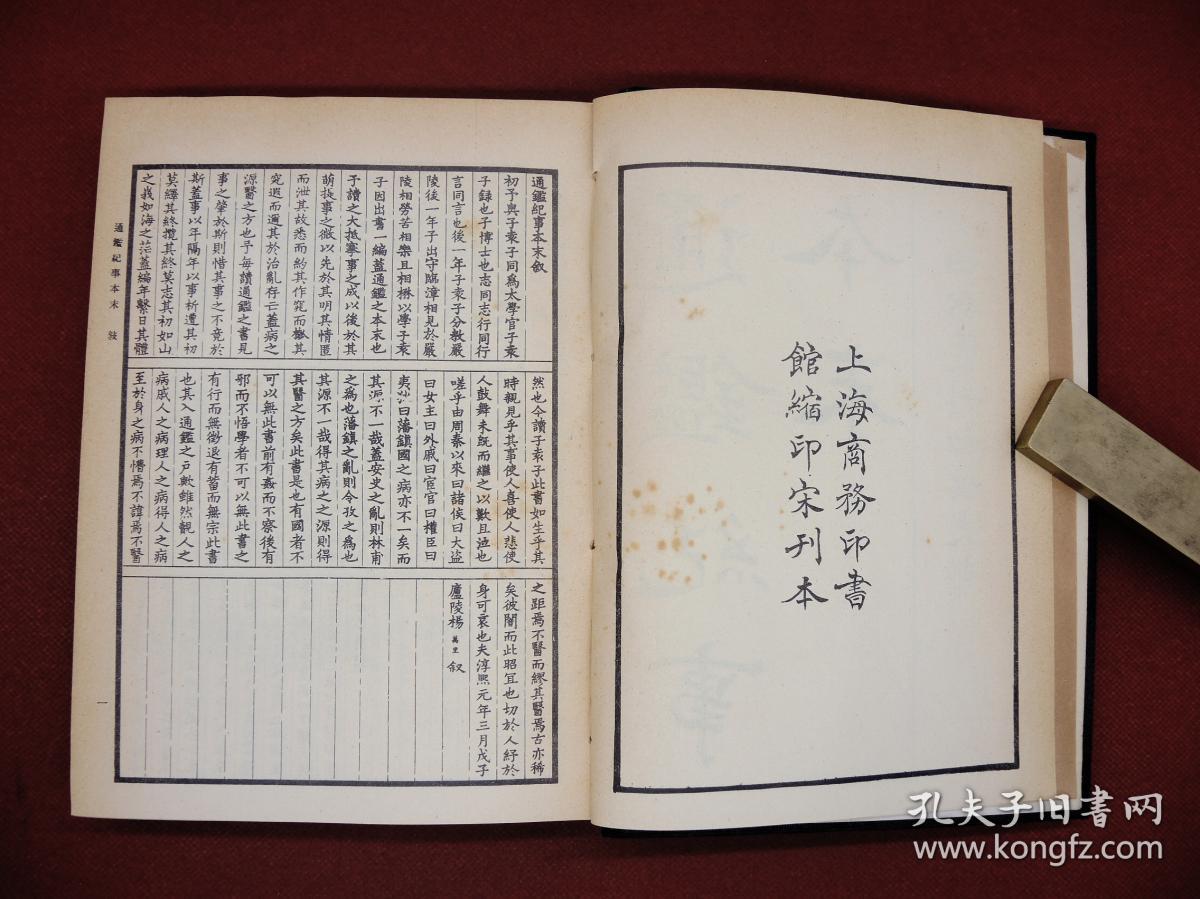 上海商務印書
館縮印宋刊本
通鑑紀事本末敘
初予與子袁子同爲太學官子袁
子錄也予博士也志同志行同行
言同言也後一年子袁子分教嚴
陵後一年予出守臨漳相見於嚴
陵相勞苦相樂且相楙以學子袁
子因出書一編蓋通鑑之本末也
予讀之大抵搴事之成以後於其
萌提事之微以先於其明其情匿
而泄其故悉而約其作窕而槬其
究遐而邇其於治亂存亡蓋病之
源醫之方也予每讀通鑑之書見
事之肇於斯則惜其事之不竟於
斯蓋事以年隔年以事析遭其初
莫繹其終攬其終莫志其初如山
之峩如海之茫蓋編年繫日其體
然也今讀子袁子此書如生乎其
時親見乎其事使人喜使人悲使
人鼓舞未既而繼之以歎且泣也
嗟乎由周秦以來曰諸侯曰大盗
曰女主曰外戚曰宦官曰權臣曰
夷狄曰藩鎮國之病亦不一矣而
其源不一哉蓋安史之亂則林甫
之爲也藩鎮之亂則令孜之爲也
其源不一哉得其病之之源則得
其醫之方矣此書是也有國者不
可以無此書前有姦而不察後有
邪而不悟學者不可以無此書之
有行而無徵退有蓄而無宗此書
也其入通鑑之戶歟雖然覿人之
病戚人之病理人之病得人之病
至於身之病不懵焉不諱焉不醫
之距焉不醫而繆其醫焉古亦稀
矣彼闇而此昭宜也切於人紓於
身可哀也夫淳熙元年三月戊子
廬陵楊萬里叙
通鑑紀事本末 敍
一
孔夫子旧书网
www.kongfz.com